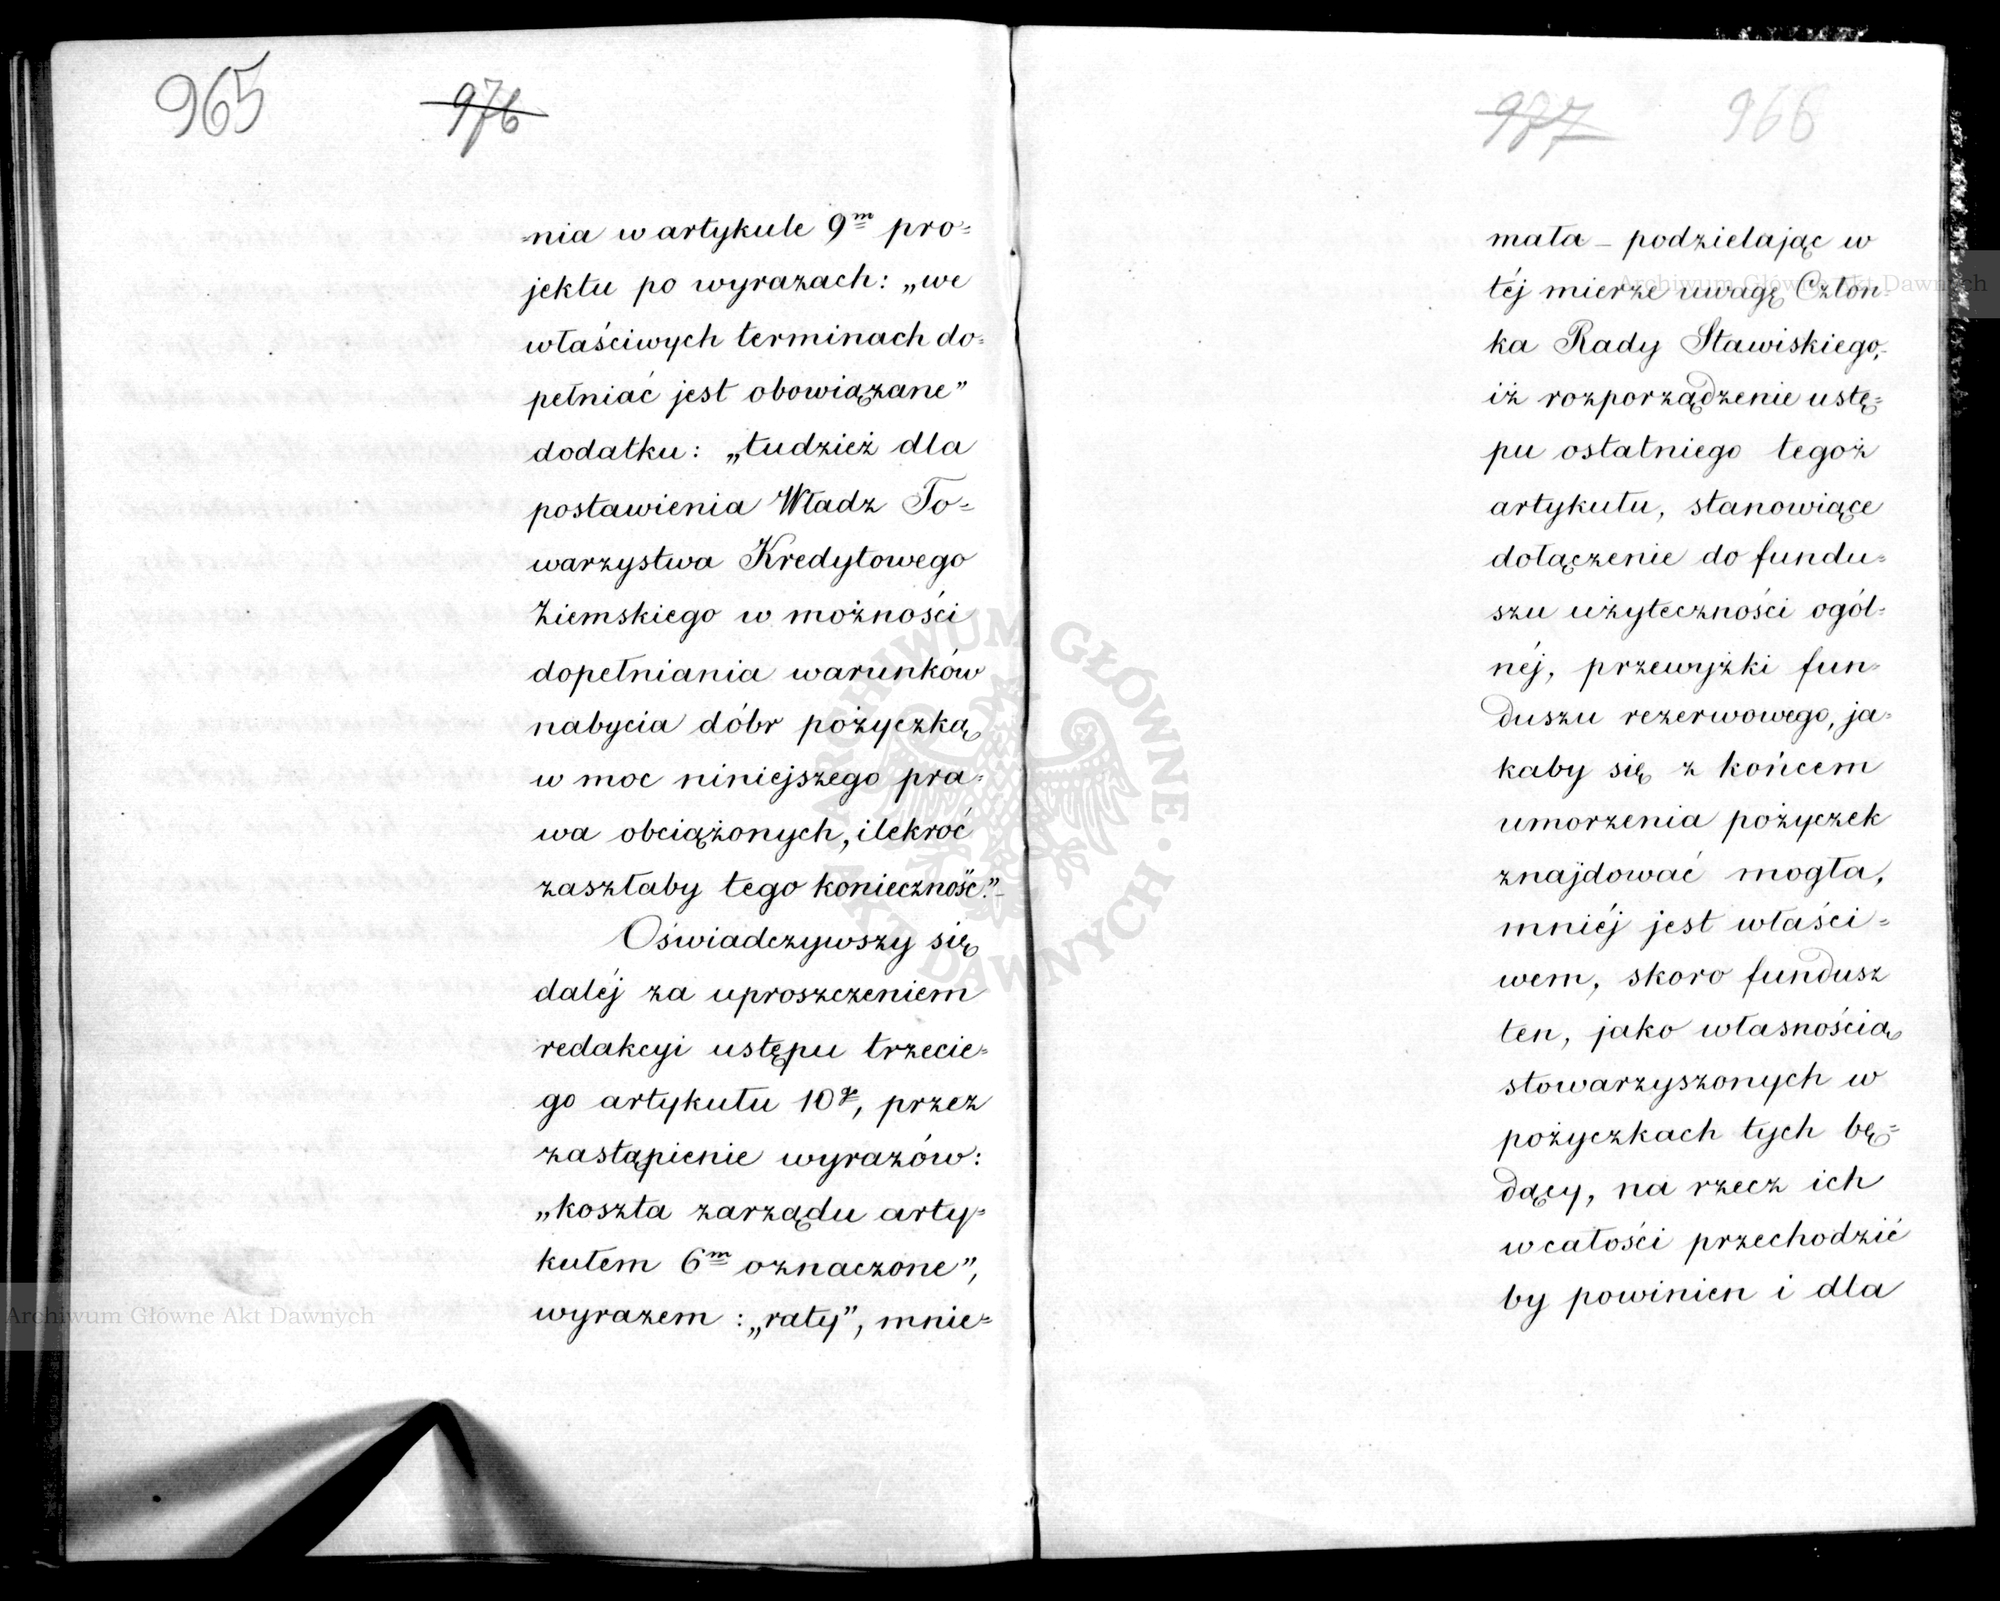 965
976
-nia w artykule 9m pro-
jektu po wyrazach: „we
właściwych terminach do-
pełniać jest obowiązane”
dodatku: „tudzież dla
postawienia Władz To-
warzystwa Kredytowego
Ziemskiego w możności
dopełniania warunków
nabycia dóbr pożyczką
w moc niniejszego pra-
wa obciążonych, ilekroć
zaszłaby tego konieczność.”
Oświadczywszy się
daléj za uproszczeniem
redakcyi ustępu trzecie-
go artykułu 10go, przez
zastąpienie wyrazów:
„koszta zarządu arty-
kułem 6m oznaczone”,
wyrazem: „raty”, mnie-
977
966
mała – podzielając w
téj mierze uwagę Człon-
ka Rady Stawiskiego,
iż rozporządzenie ustę-
pu ostatniego tegoż
artykułu, stanowiące
dołączenie do fundu-
szu użyteczności ogól-
néj, przewyżki fun-
duszu rezerwowego, ja-
kaby się z końcem
umorzenia pożyczek
znajdować mogła,
mniéj jest właści-
wem, skoro fundusz
ten, jako własnością
stowarzyszonych w
pożyczkach tych bę-
dący, na rzecz ich
w całości przechodzić
by powinien i dla
ARCHIWUM GŁÓWNE AKT DAWNYCH
Archiwum Główne Akt Dawnych
Archiwum Główne Akt Dawnych